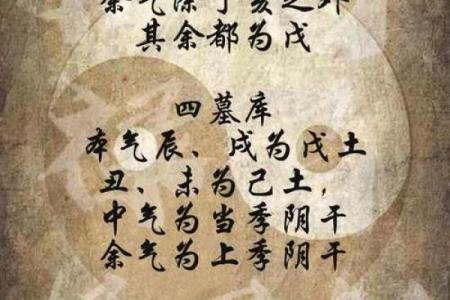 余气除了亥之外
其余都为戊
四墓库
本气辰、戌为戊土
丑、未为己土，
中气为当季阴干
余气为上季阴干